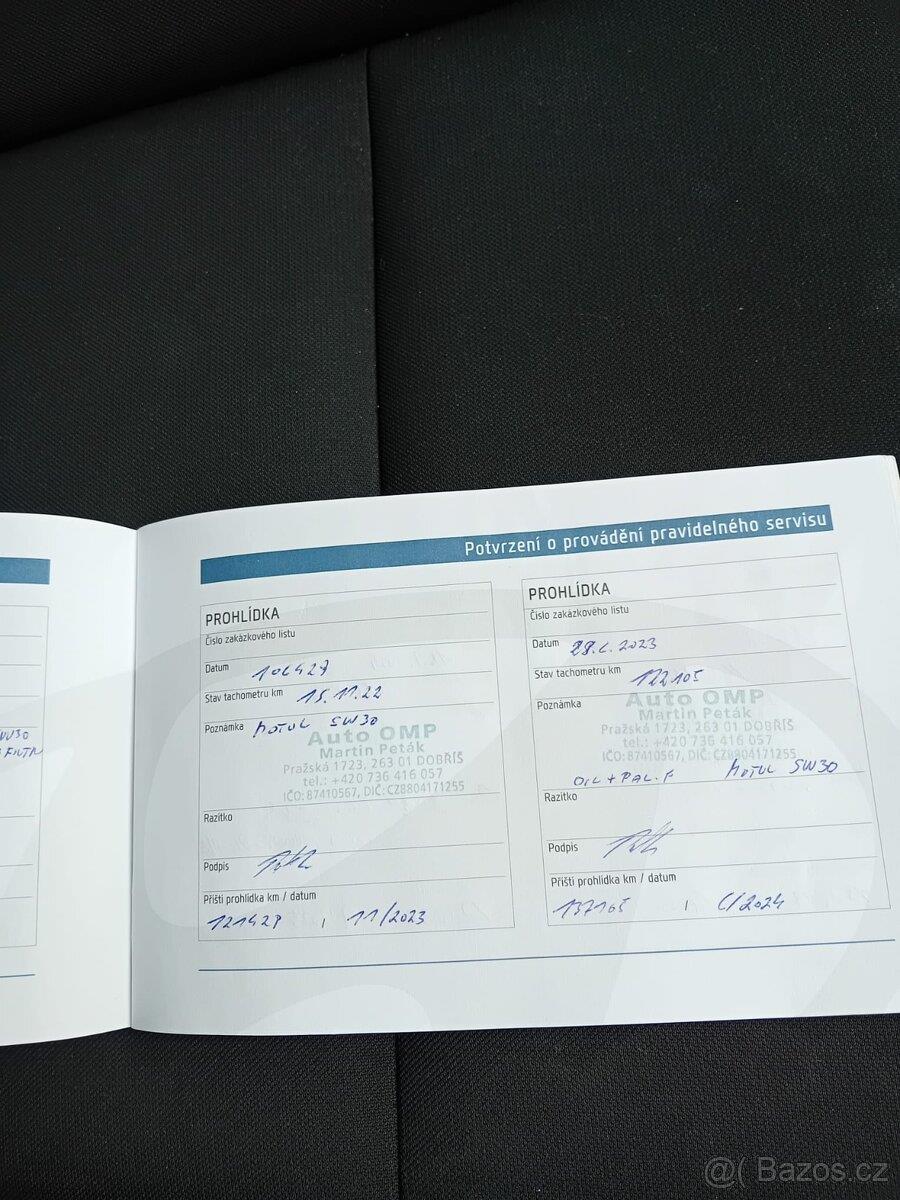 Potvrzení o provádění pravidelného servisu
PROHLÍDKA
Číslo zakázkového listu
Datum 106427
Stav tachometru km 15.11.22
Poznámka MOTUL 5W30
Auto OMP
Martin Peták
Pražská 1723, 263 01 DOBŘÍŠ
tel.: +420 736 416 057
IČO: 87410567, DIČ: CZ8804171255
Razítko
Podpis
Příští prohlídka km / datum
121427 , 11/2023
PROHLÍDKA
Číslo zakázkového listu
Datum 2023
Stav tachometru km 122105
Poznámka
Auto OMP
Martin Peták
Pražská 1723, 263 01 DOBŘÍŠ
tel.: +420 736 416 057
IČO: 87410567, DIČ: CZ8804171255
OIL + PAL. F MOTUL 5W30
Razítko
Podpis
Příští prohlídka km / datum
137105 , 6/2024
@( Bazos.cz